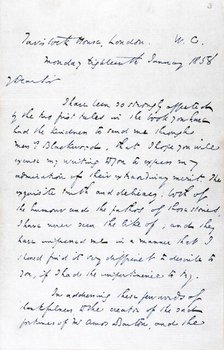 Tavistock House, London. W.C.
Monday Eighteenth January 1858
Dear Sir
I have been so strongly affected by
the two first tales in the book you have
had the kindness to send me through
Messrs Blackwoods, that I hope you will
excuse my writing to you to express my
admiration of their extraordinary merit. The
exquisite truth and delicacy, both of
the humour and the pathos of those stories,
I have never seen the like of; and they
have impressed me in a manner that I
should find it very difficult to describe to
you, if I had the impertinence to try.
In addressing these few words of
thankfulness to the creator of the sad
fortunes of Mr Amos Barton, and the